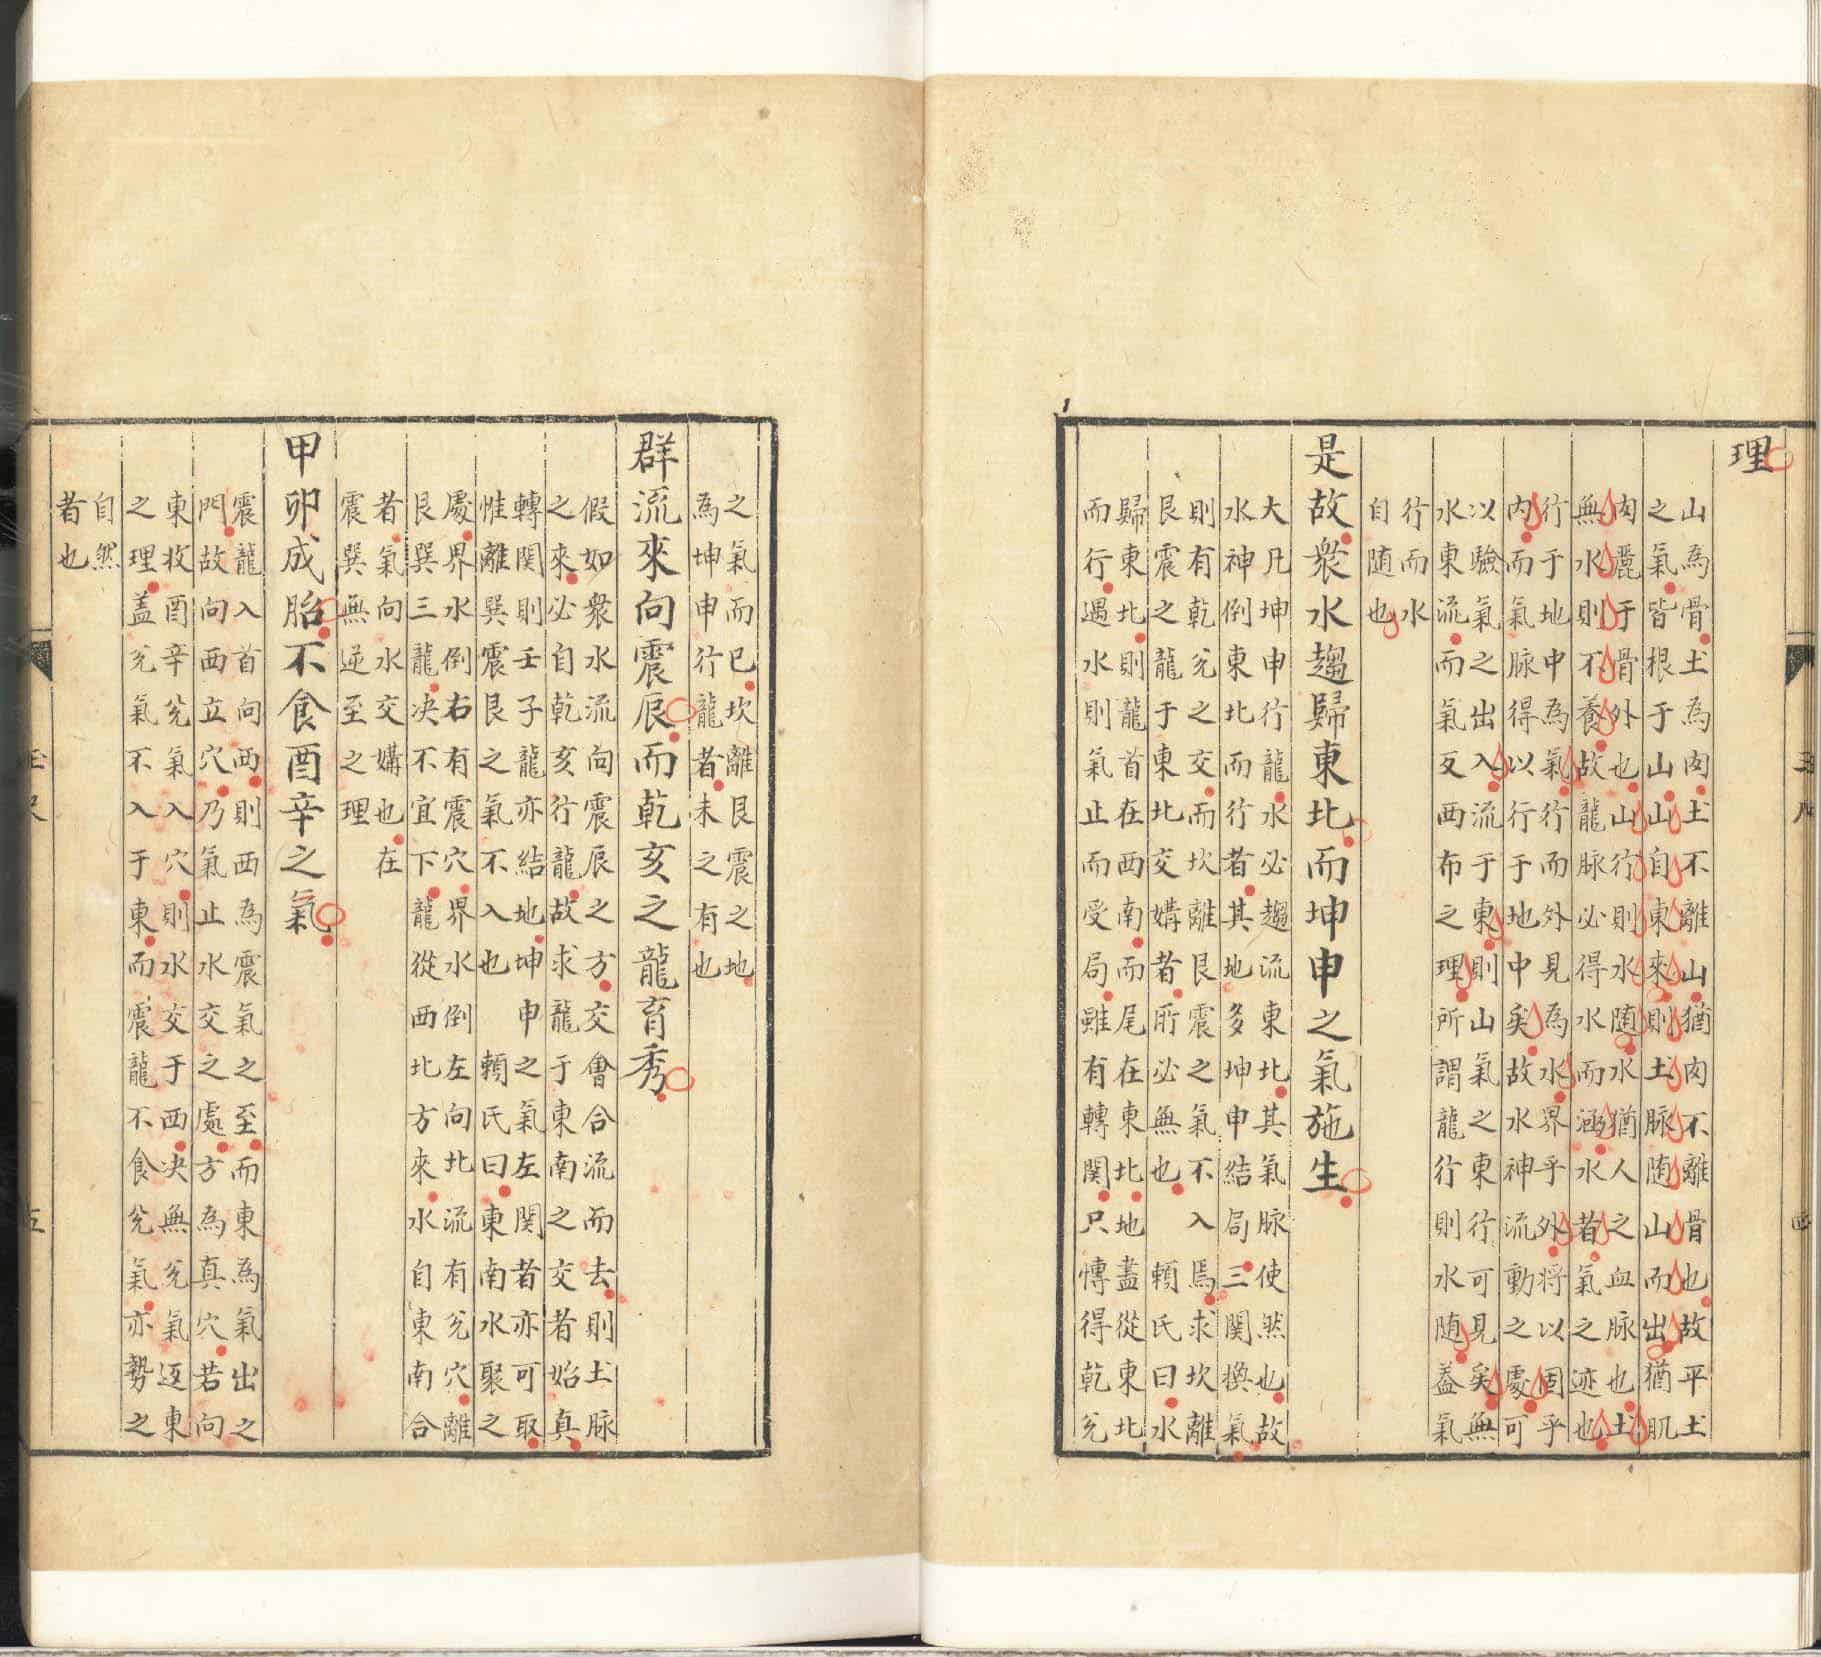 理
山為骨土為肉土不離山猶肉不離骨也故平土
之氣皆根于山山自東來則土脉随山而出猶肌
肉麗于骨外也山行則水随水猶人之血脉也土
無水則不養故龍脉必得水而涵水者氣之迹也
行于地中為氣行而外見為水界乎外将以固乎
内而氣脉得以行于地中矣故水神流動之處可
以驗氣之出入流于東則山氣之東行可見矣無
水東流而氣反西布之理所謂龍行則水随蓋氣
行而水
自随也
是故衆水趨歸東北而坤申之氣施生
大凡坤申行龍水必趨流東北其氣脉使然也故
水神倒東北而行者其地多坤申結局三関換氣
則有乾兊之交而坎離艮震之氣不入焉求坎離
艮震之龍于東北交媾者所必無也 頼氏曰水
歸東北則龍首在西南而尾在東北地盡從東北
而行遇水則氣止而受局雖有轉関只慱得乾兊
之氣而已坎離艮震之地
為坤申行龍者未之有也
群流來向震辰而乾亥之龍育秀
假如衆水流向震辰之方交會合流而去則土脉
之來必自乾亥行龍故求龍于東南之交者始真
轉関則壬子龍亦結地坤申之氣左関者亦可取
惟離巽震艮之氣不入也 頼氏曰東南水聚之
處界水倒右有震穴界水倒左向北流有兊穴離
艮巽三龍决不宜下龍從西北方來水自東南合
者氣向水交媾也在
震巽無逆至之理
甲卯成胎不食酉辛之氣
震龍入首向西則西為震氣之至而東為氣出之
門故向西立穴乃氣止水交之處方為真穴若向
東收酉辛兊氣入穴則水交于西决無兊氣返東
之理蓋兊氣不入于東而震龍不食兊氣亦勢之
自然
者也